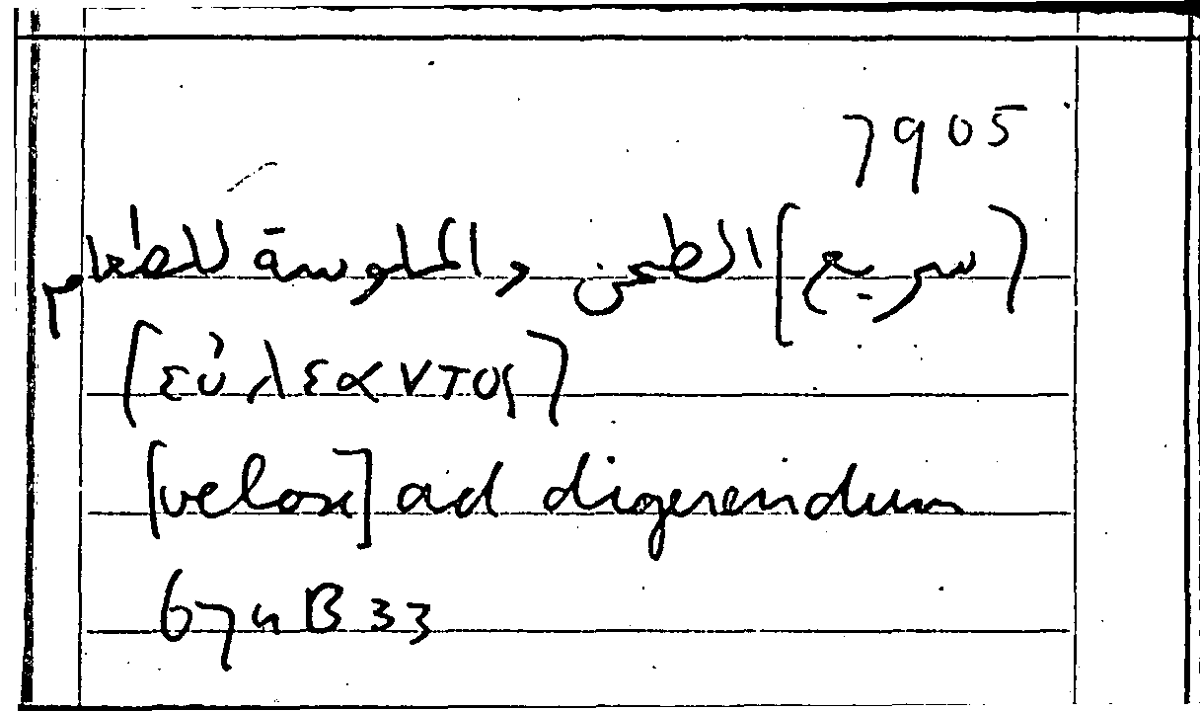 7905
(سريع] الطحن والملوسة للطعام
(εὐλεαντος)
[velox] ad digerendum
674B33